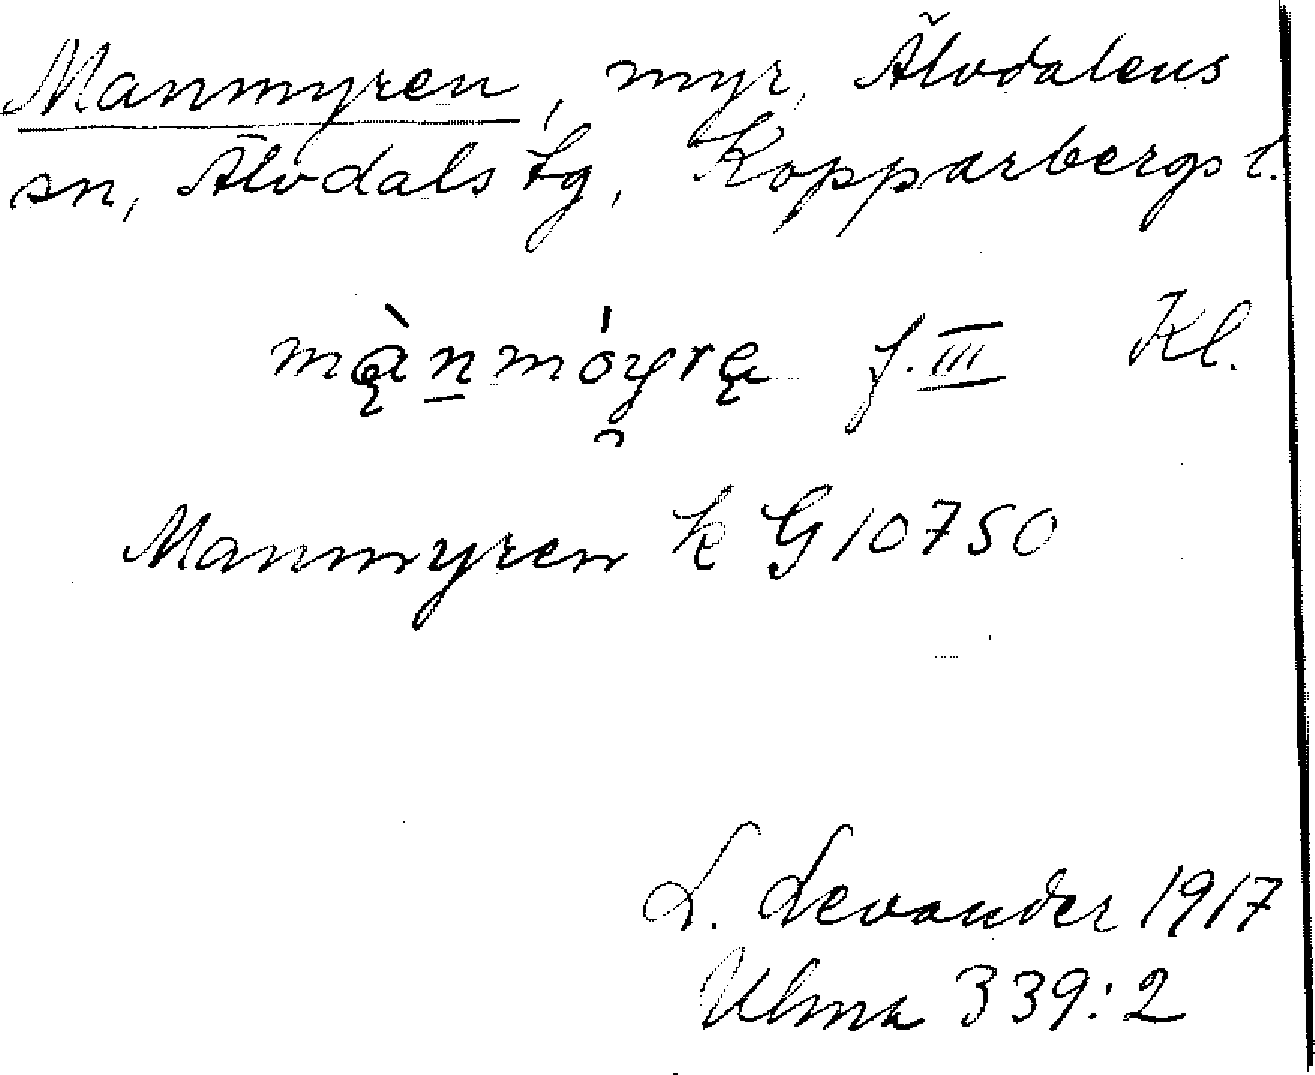 Manmyren, myr, Älvdalens
sn, Älvdals tg, Kopparbergs l.
f. III Kl.
Manmyren k G 10750
L. Levander 1917
Ulma 339:2